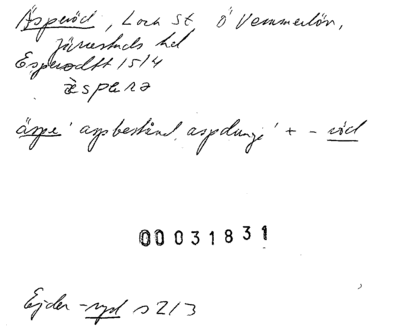 Äsperöd, L och St Ö Vemmerlöv,
Järrestads hd
Esperödt 1514
èspərə
äspe 'aspbestånd, aspdunge' + - röd
00031831
Ejder -ryd s 213